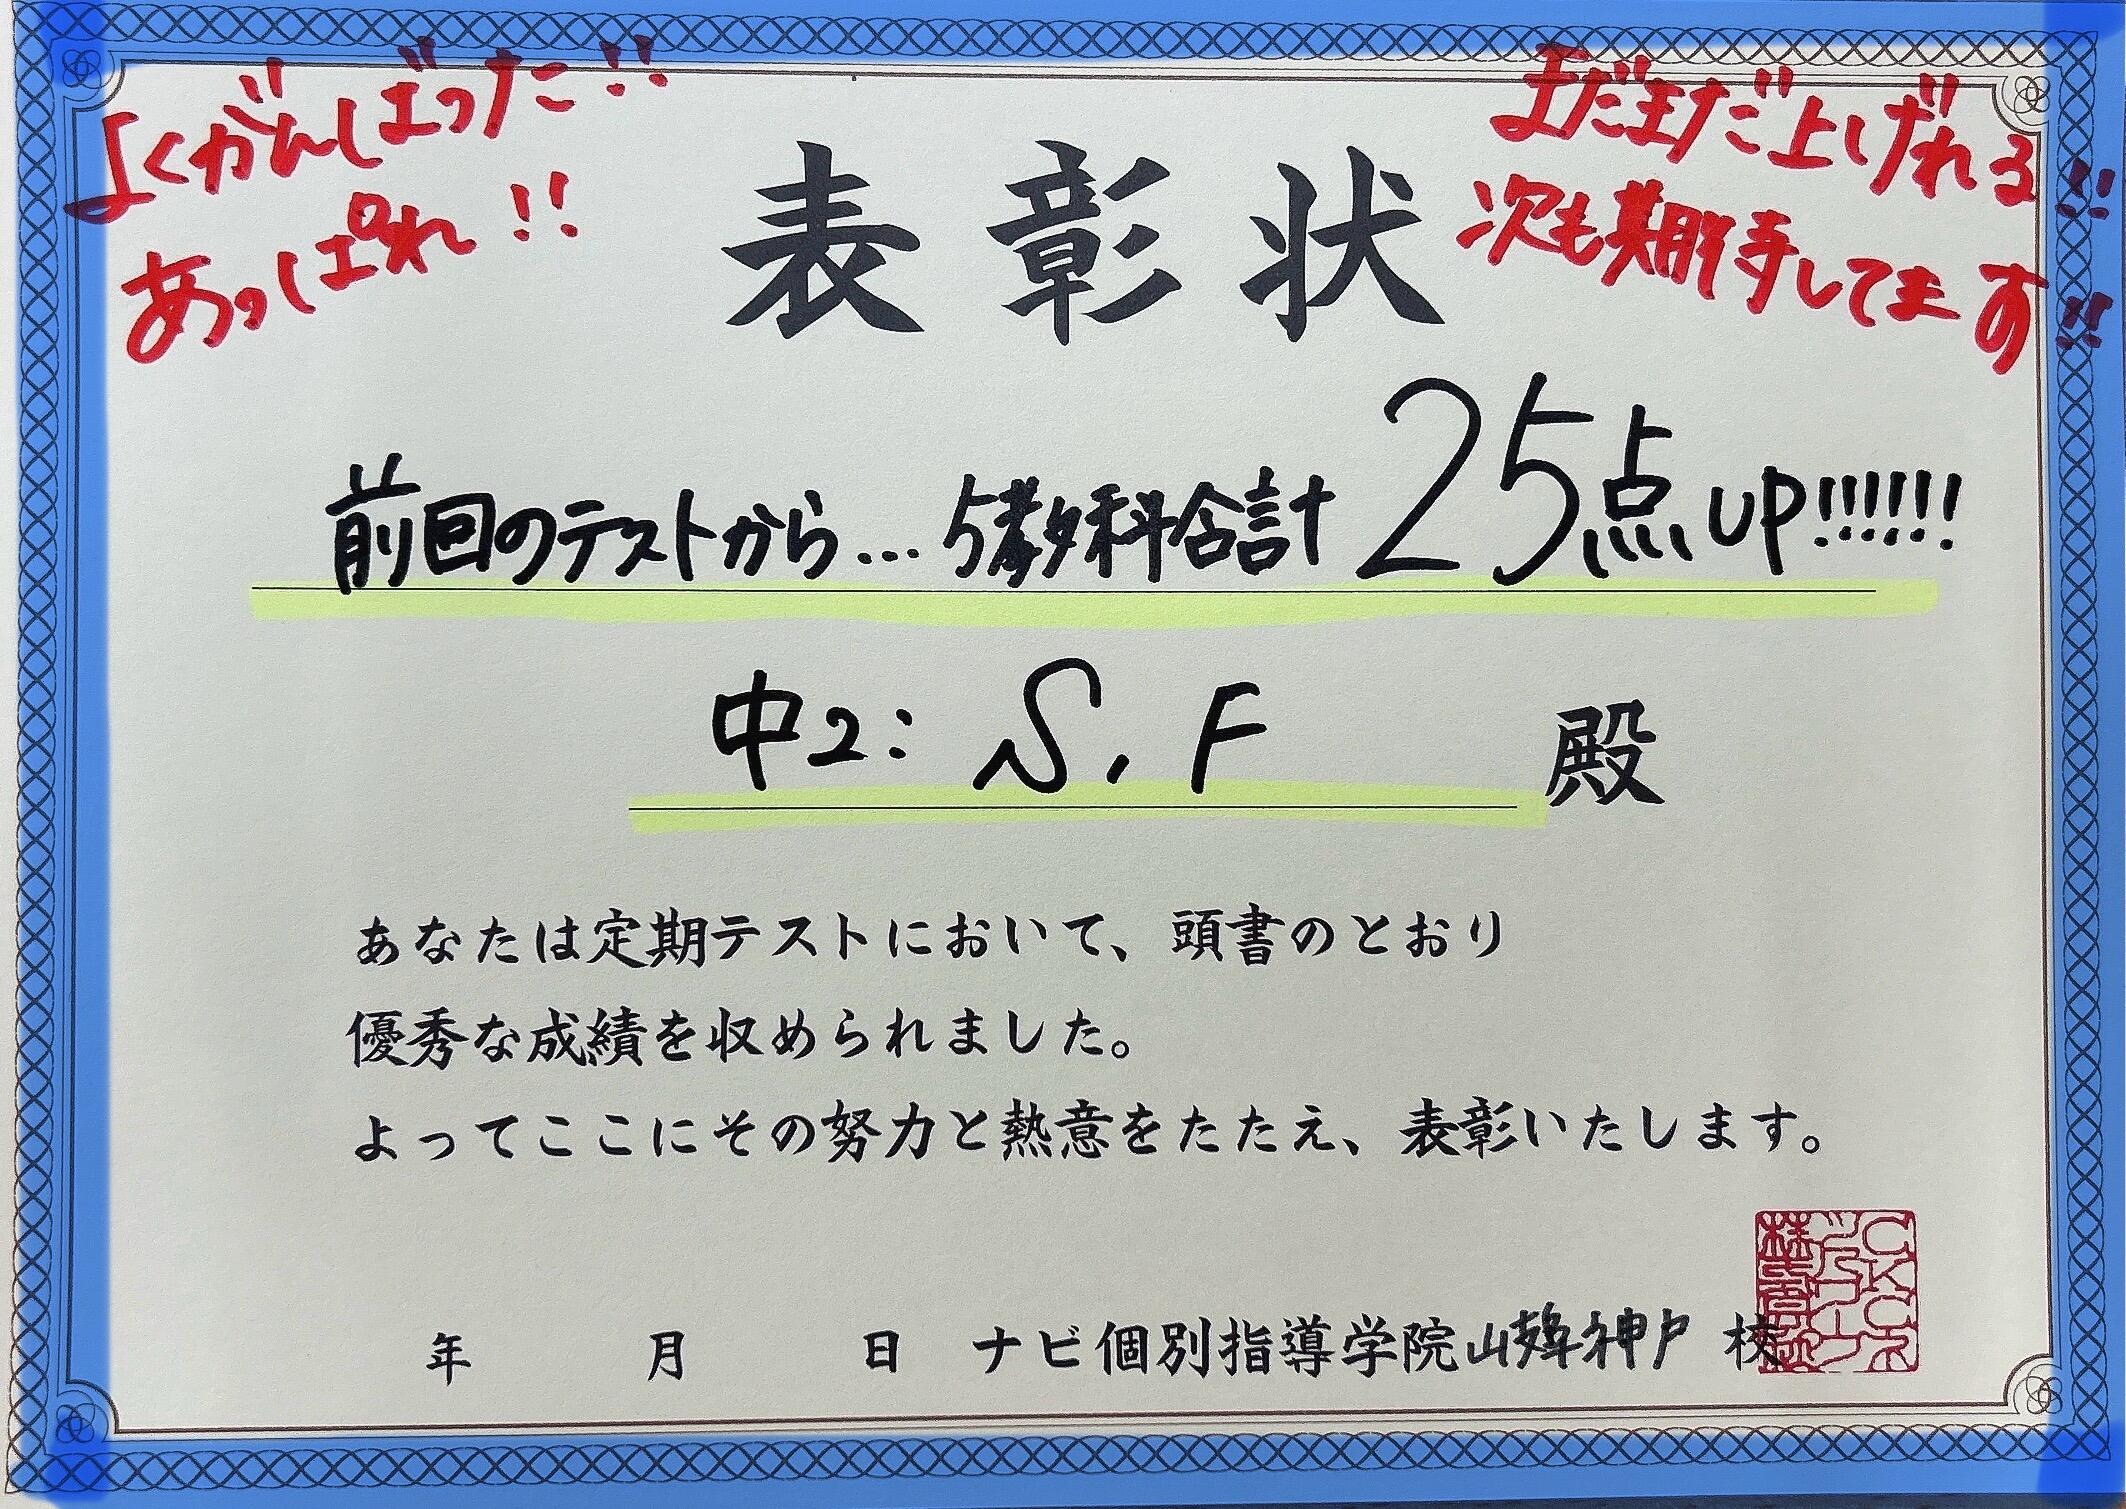 よくがんばった!!
あっぱれ!!
まだまだ上げれる!!
次も期待してます!!
表彰状
前回のテストから...5教科合計25点UP!!!!!!
中2: S.F 殿
あなたは定期テストにおいて、頭書のとおり
優秀な成績を収められました。
よってここにその努力と熱意をたたえ、表彰いたします。
年 月 日 ナビ個別指導学院山形神戸校